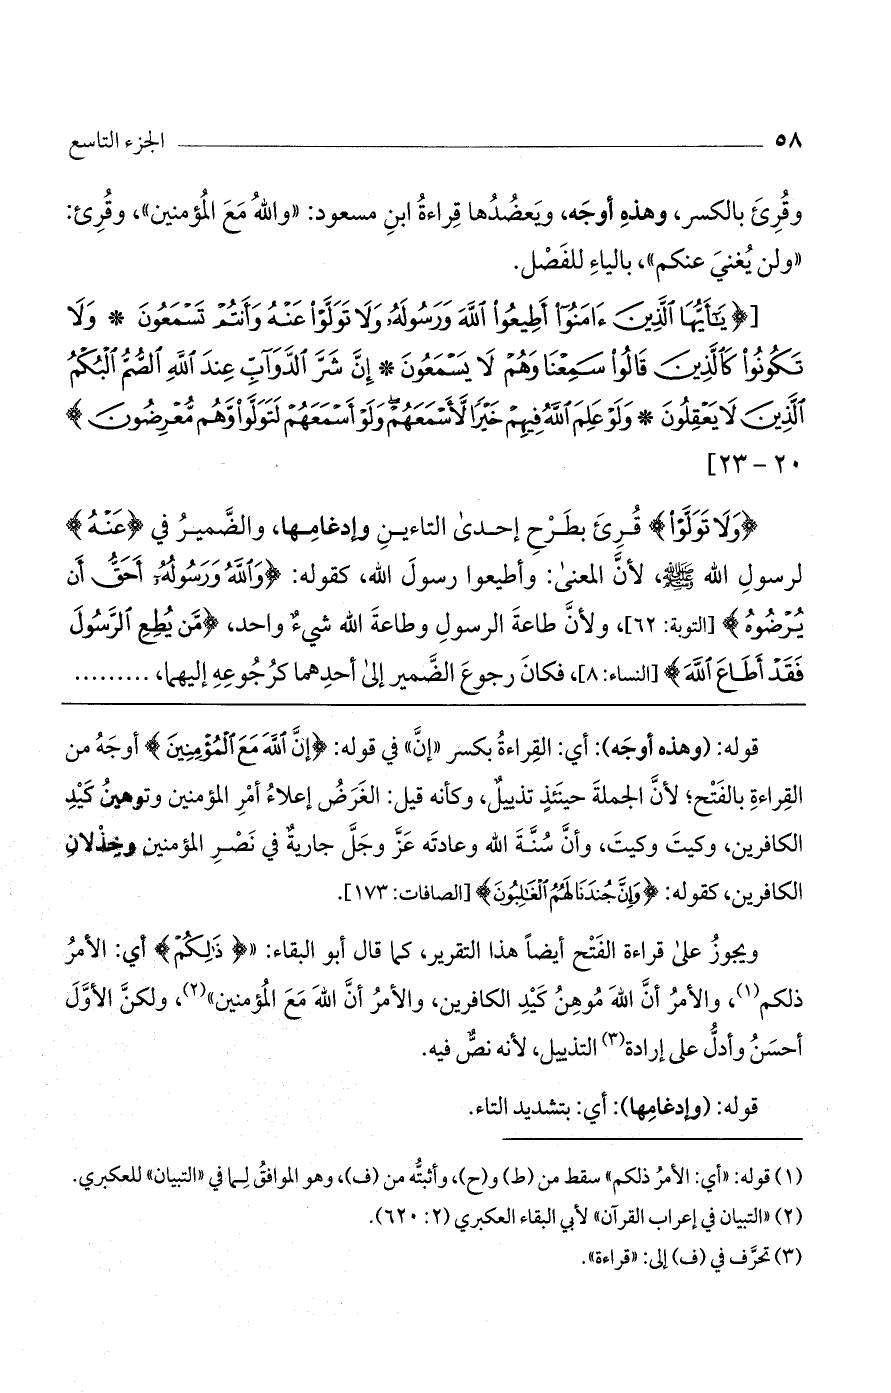 ٥٨ الجزء التاسع
وقُرِئَ بالكسر، وهذهِ أوجَه، ويَعضُدُها قِراءةُ ابنِ مسعود: «واللهُ مَعَ المُؤمنين»، وقُرِئ:
«ولن يُغنيَ عنكم»، بالياءِ للفَصْل.
[﴿يَـٰٓأَيُّهَا ٱلَّذِينَ ءَامَنُوٓا۟ أَطِيعُوا۟ ٱللَّهَ وَرَسُولَهُۥ وَلَا تَوَلَّوْا۟ عَنْهُ وَأَنتُمْ تَسْمَعُونَ * وَلَا
تَكُونُوا۟ كَٱلَّذِينَ قَالُوا۟ سَمِعْنَا وَهُمْ لَا يَسْمَعُونَ * إِنَّ شَرَّ ٱلدَّوَآبِّ عِندَ ٱللَّهِ ٱلصُّمُّ ٱلْبُكْمُ
ٱلَّذِينَ لَا يَعْقِلُونَ * وَلَوْ عَلِمَ ٱللَّهُ فِيهِمْ خَيْرًا لَّأَسْمَعَهُمْ ۖ وَلَوْ أَسْمَعَهُمْ لَتَوَلَّوا۟ وَّهُم مُّعْرِضُونَ﴾
٢٠ – ٢٣]
﴿وَلَا تَوَلَّوْا۟﴾ قُرِئَ بطَرْحِ إحدىٰ التاءينِ وإدغامِها، والضَّميرُ في ﴿عَنْهُ﴾
لرسولِ الله ﷺ، لأنَّ المعنىٰ: وأطيعوا رسولَ الله، كقوله: ﴿وَٱللَّهُ وَرَسُولُهُۥٓ أَحَقُّ أَن
يُرْضُوهُ﴾ [التوبة: ٦٢]، ولأنَّ طاعةَ الرسولِ وطاعةَ الله شيءٌ واحد، ﴿مَّن يُطِعِ ٱلرَّسُولَ
فَقَدْ أَطَاعَ ٱللَّهَ﴾ [النساء: ٨]، فكانَ رجوعَ الضَّميرِ إلىٰ أحدِهما كرُجُوعِهِ إليهما، .........
قوله: (وهذه أوجَه): أي: القِراءةُ بكسر «إنَّ» في قوله: ﴿إِنَّ ٱللَّهَ مَعَ ٱلْمُؤْمِنِينَ﴾ أوجَهُ من
القِراءةِ بالفَتْح؛ لأنَّ الجملةَ حينَئذٍ تذييلٌ، وكأنه قيل: الغَرَضُ إعلاءُ أمْرِ المؤمنين وتوهينُ كَيْدِ
الكافرين، وكيتَ وكيتَ، وأنَّ سُنَّةَ الله وعادتَه عَزَّ وجَلَّ جاريةٌ في نَصْرِ المؤمنين وخِذْلانِ
الكافرين، كقوله: ﴿وَإِنَّ جُندَنَا لَهُمُ ٱلْغَـٰلِبُونَ﴾ [الصافات: ١٧٣].
ويجوزُ علىٰ قراءة الفَتْح أيضاً هذا التقرير، كما قال أبو البقاء: «﴿ذَٰلِكُمْ﴾ أي: الأمرُ
ذلكم(١)، والأمرُ أنَّ اللهَ مُوهِنُ كَيْدِ الكافرين، والأمرُ أنَّ اللهَ مَعَ المُؤمنين»(٢)، ولكنَّ الأوَّلَ
أحسَنُ وأدلُّ على إرادة(٣) التذييل، لأنه نصٌّ فيه.
قوله: (وإدغامِها): أي: بتشديد التاء.
(١) قوله: «أي: الأمرُ ذلكم» سقط من (ط) و(ح)، وأثبتُّه من (ف)، وهو الموافقُ لِما في «التبيان» للعكبري.
(٢) «التبيان في إعراب القرآن» لأبي البقاء العكبري (٢: ٦٢٠).
(٣) تحرَّف في (ف) إلى: «قراءة».